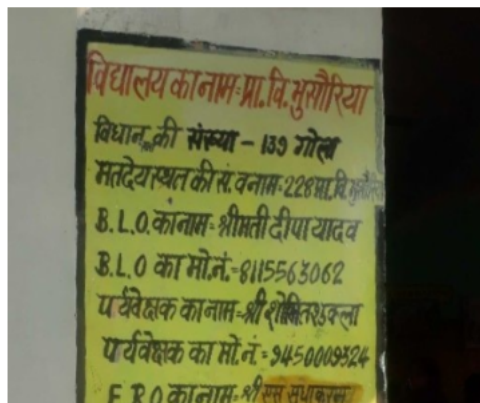 विद्यालय का नाम:- प्रा. वि. भुसौरिया
विधान की संख्या - 139 गोला
मतदेय स्थल की सं. व नाम:- 228 प्रा. वि. भुसौरिया
B.L.O. का नाम:- श्रीमती दीपा यादव
B.L.O का मो.नं.- 8115563062
पर्यवेक्षक का नाम:- श्री शोभित शुक्ला
पर्यवेक्षक का मो.नं:- 9450009324
E.R.O का नाम:- श्री एस सुधाकरन